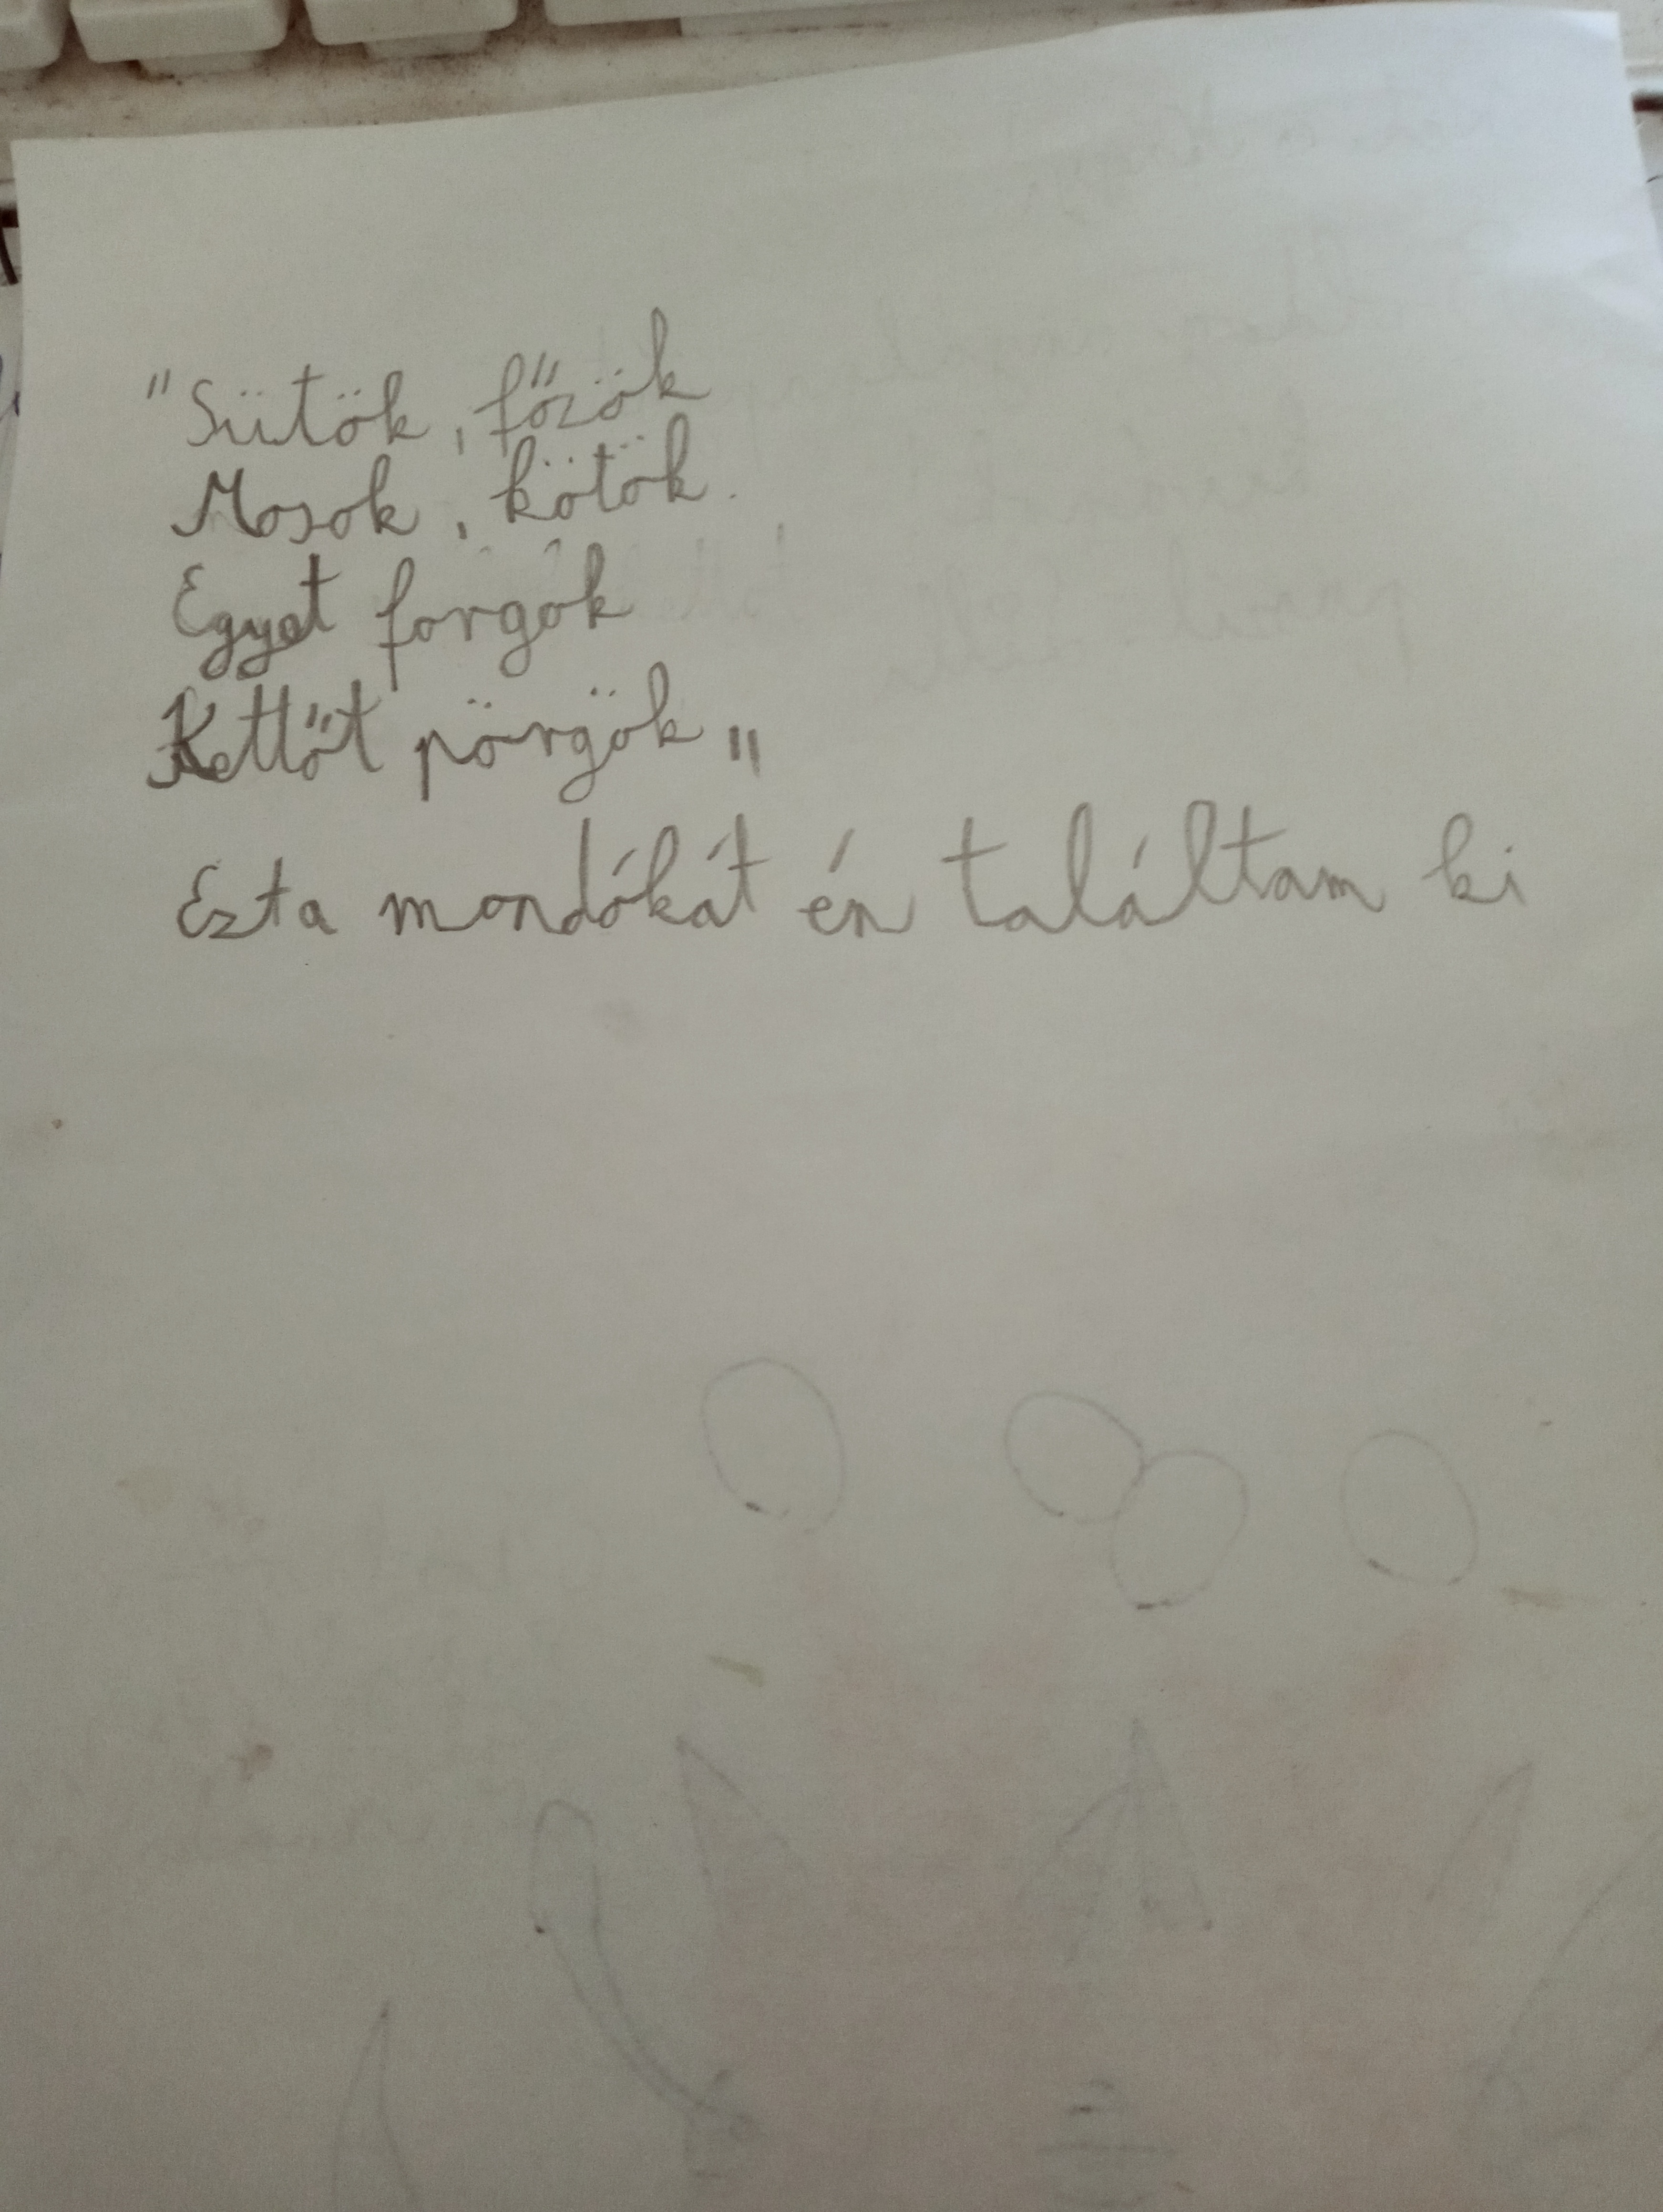 "Sütök, főzök
Mosok, kötök.
Egyet forgok
Kettőt pörgök"
Ezt a mondókát én találtam ki